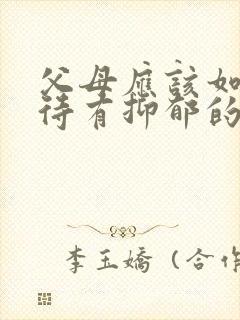 父母應該如
待有抑郁的
李玉嬌（合作